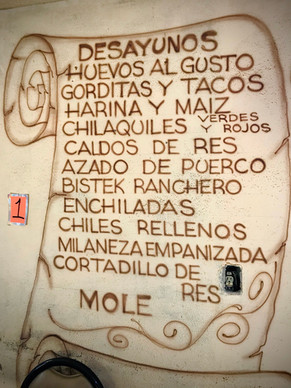 DESAYUNOS
HUEVOS AL GUSTO
GORDITAS Y TACOS
HARINA Y MAIZ
CHILAQUILES VERDES Y ROJOS
CALDOS DE RES
AZADO DE PUERCO
BISTEK RANCHERO
ENCHILADAS
CHILES RELLENOS
MILANEZA EMPANIZADA
CORTADILLO DE RES
MOLE
1